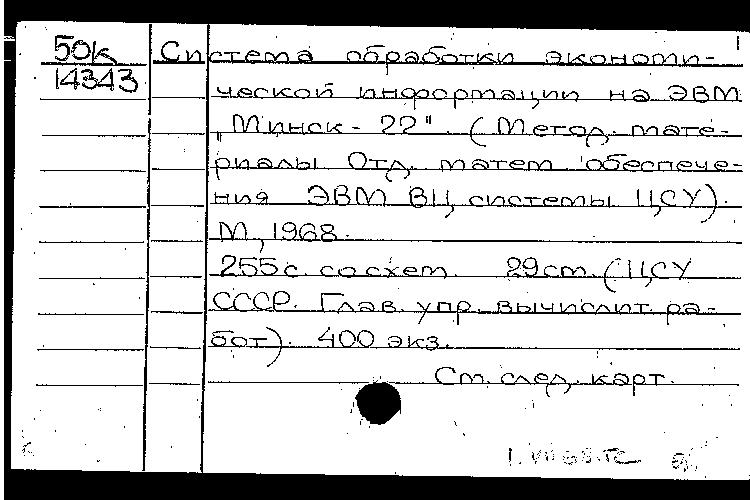 50к
14343
Система обработки экономи-
ческой информации на ЭВМ
„Минск-22". (Метод. мате-
риалы Отд. матем обеспече-
ния ЭВМ ВЦ системы ЦСУ).
М., 1968.
255с. со схем. 29см. (ЦСУ
СССР. Глав. упр. вычислит. ра-
бот). 400 экз.
См. след. карт.